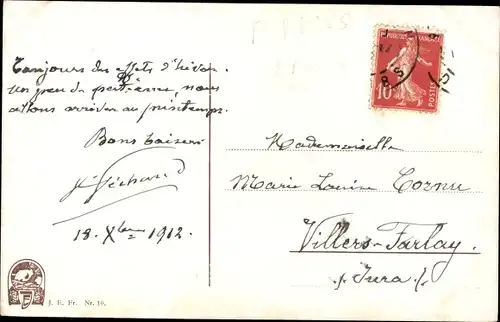 Toujours des effets d'hiver.
Un peu de patience, nous
allons arriver au printemps.
Bons baisers
18. Xbre 1912.
Mademoiselle
Marie Louise Cornu
Villers-Farlay.
(Jura)
J. E. Fr. Nr. 10.
REPUBLIQUE FRANCAISE
10
POSTES